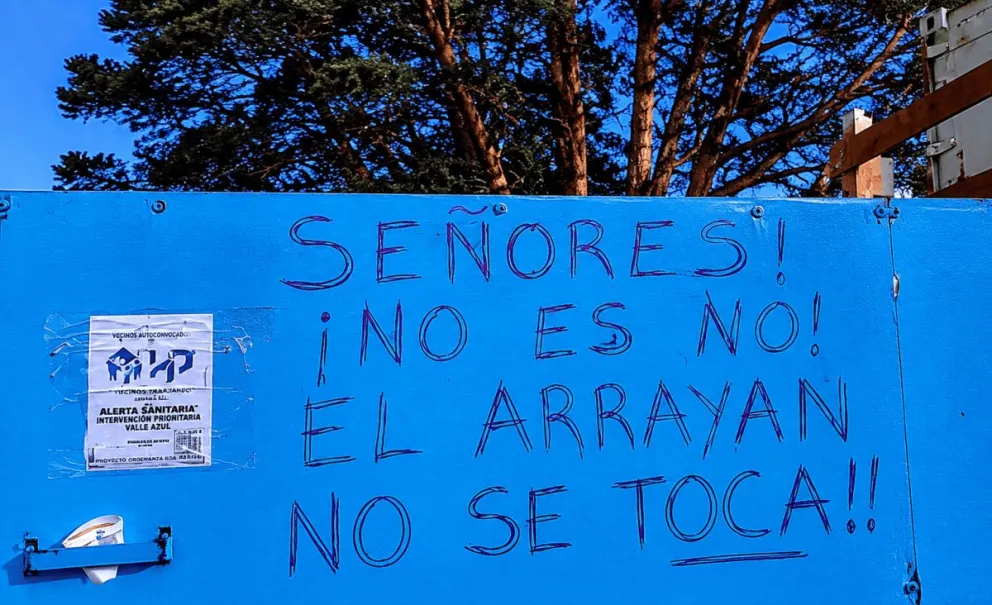 SEÑORES!
¡NO ES NO!
EL ARRAYAN
NO SE TOCA!!
VECINOS AUTOCONVOCADOS
VECINOS TRABAJANDO
ALERTA SANITARIA"
INTERVENCIÓN PRIORITARIA
VALLE AZUL
PROYECTO ORDENANZA